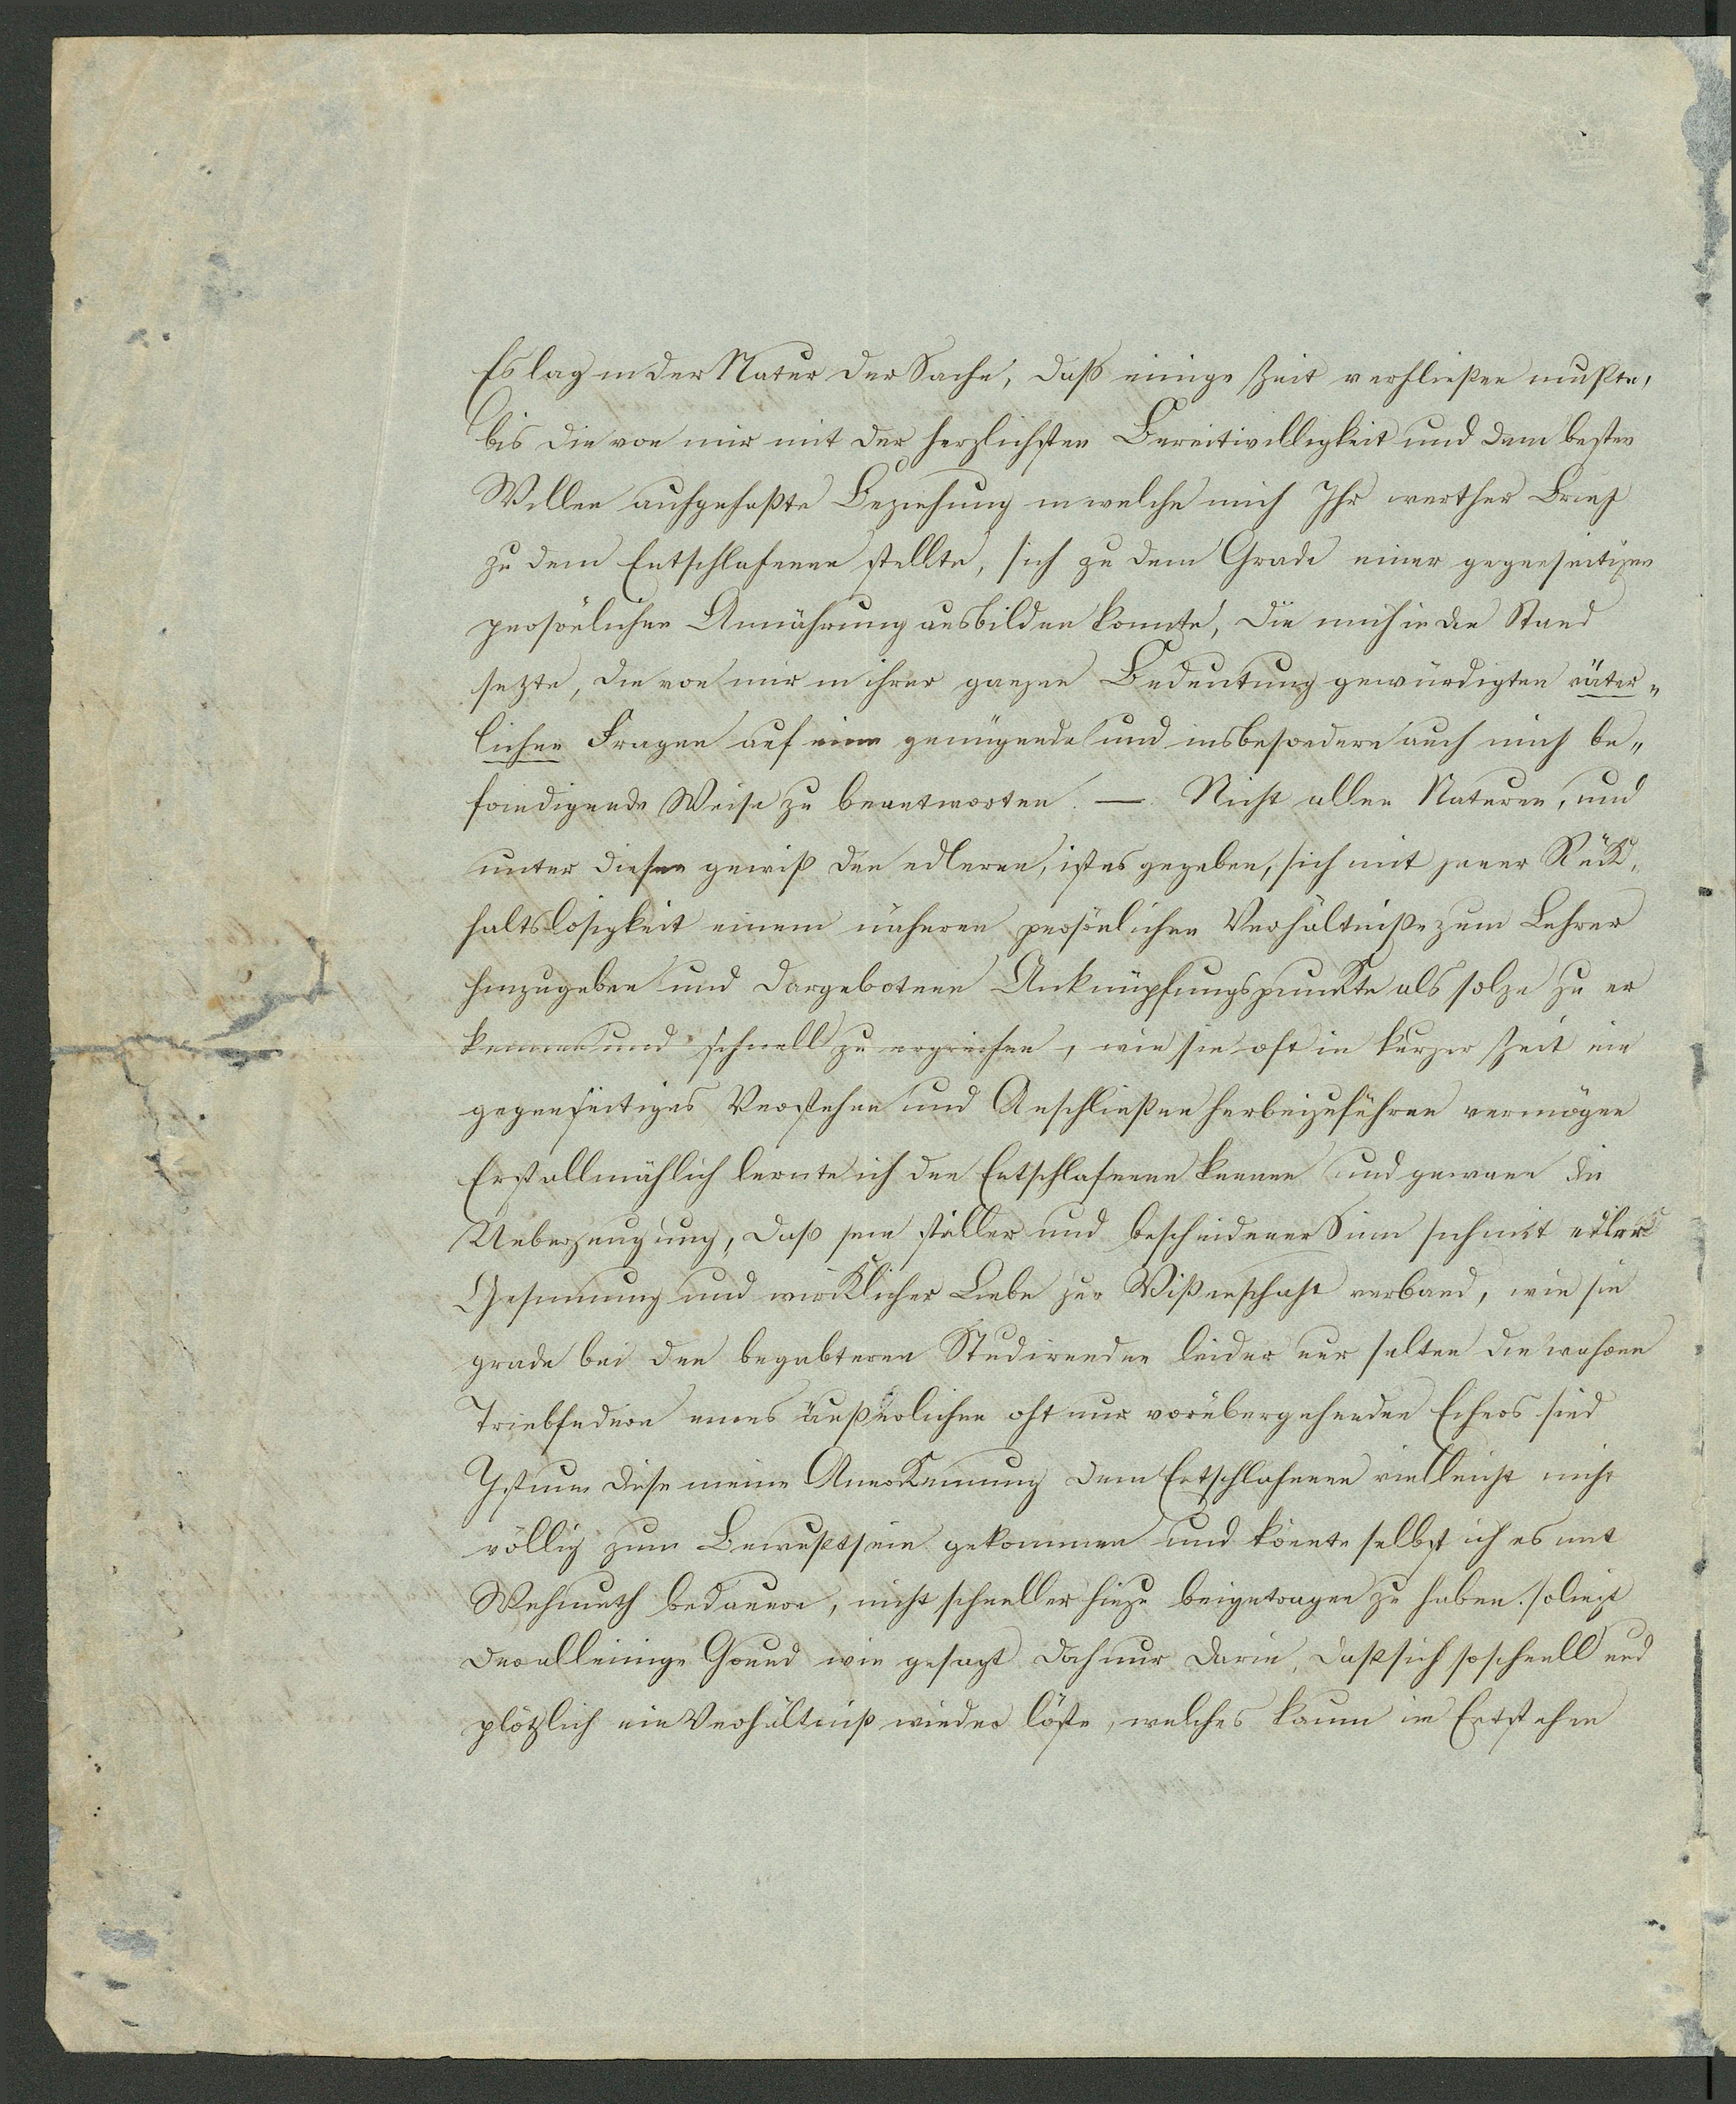 Es lag in der Natur der Sache, daß einige Zeit verfließen mußte,
bis die von mir mit der herzlichsten Bereitwilligkeit und dem besten
Willen aufgefaßte Beziehung in welche mich Ihr werther Brief
zu dem Entschlafenen stellte, sich zu dem Grade einer gegenseitigen
persönlichen Annährung ausbilden konnte, die mich in den Stand
setzte, die von mir in ihrer ganzen Bedeutung gewürdigten väter„
lichen Fragen auf eine genügende und insbesondere auch mich be„
friedigende Weise zu beantworten. — Nicht allen Naturen, und
unter diesen gewiß den edleren, ist es gegeben, sich mit jener Rück„
haltslosigkeit einem näheren persönlichen Verhältniße zum Lehrer
hinzugeben und dargebotene Anknüpfungspunkte als solche zu er
kennen und schnell zu ergreifen, wie sie oft in kurzer Zeit ein
gegenseitiges Verstehen und Anschließen herbeizuführen vermögen
Erst allmählich lernte ich den Entschlafenen kennen und gewann die
Ueberzeugung, daß sein stiller und bescheidener Sinn sich mit edler
Gesinnung und wirklicher Liebe zur Wißenschaft verband, wie sie
grade bei den begabteren Studirenden leider nur selten die wahren
Triebfedern eines äußerlichen oft nur vorübergehenden Eifers sind
Ist nun diese meine Anerkennung dem Entschlafenen vielleicht nicht
völlig zum Bewußtsein gekommen und könnte selbst ich es mit
Wehmuth bedauern, nicht schneller hiezu beigetragen zu haben. so liegt
der alleinige Grund wie gesagt doch nur darin, daß sich so schnell und
plötzlich ein Verhältniß wieder löste, welches kaum im Entstehen